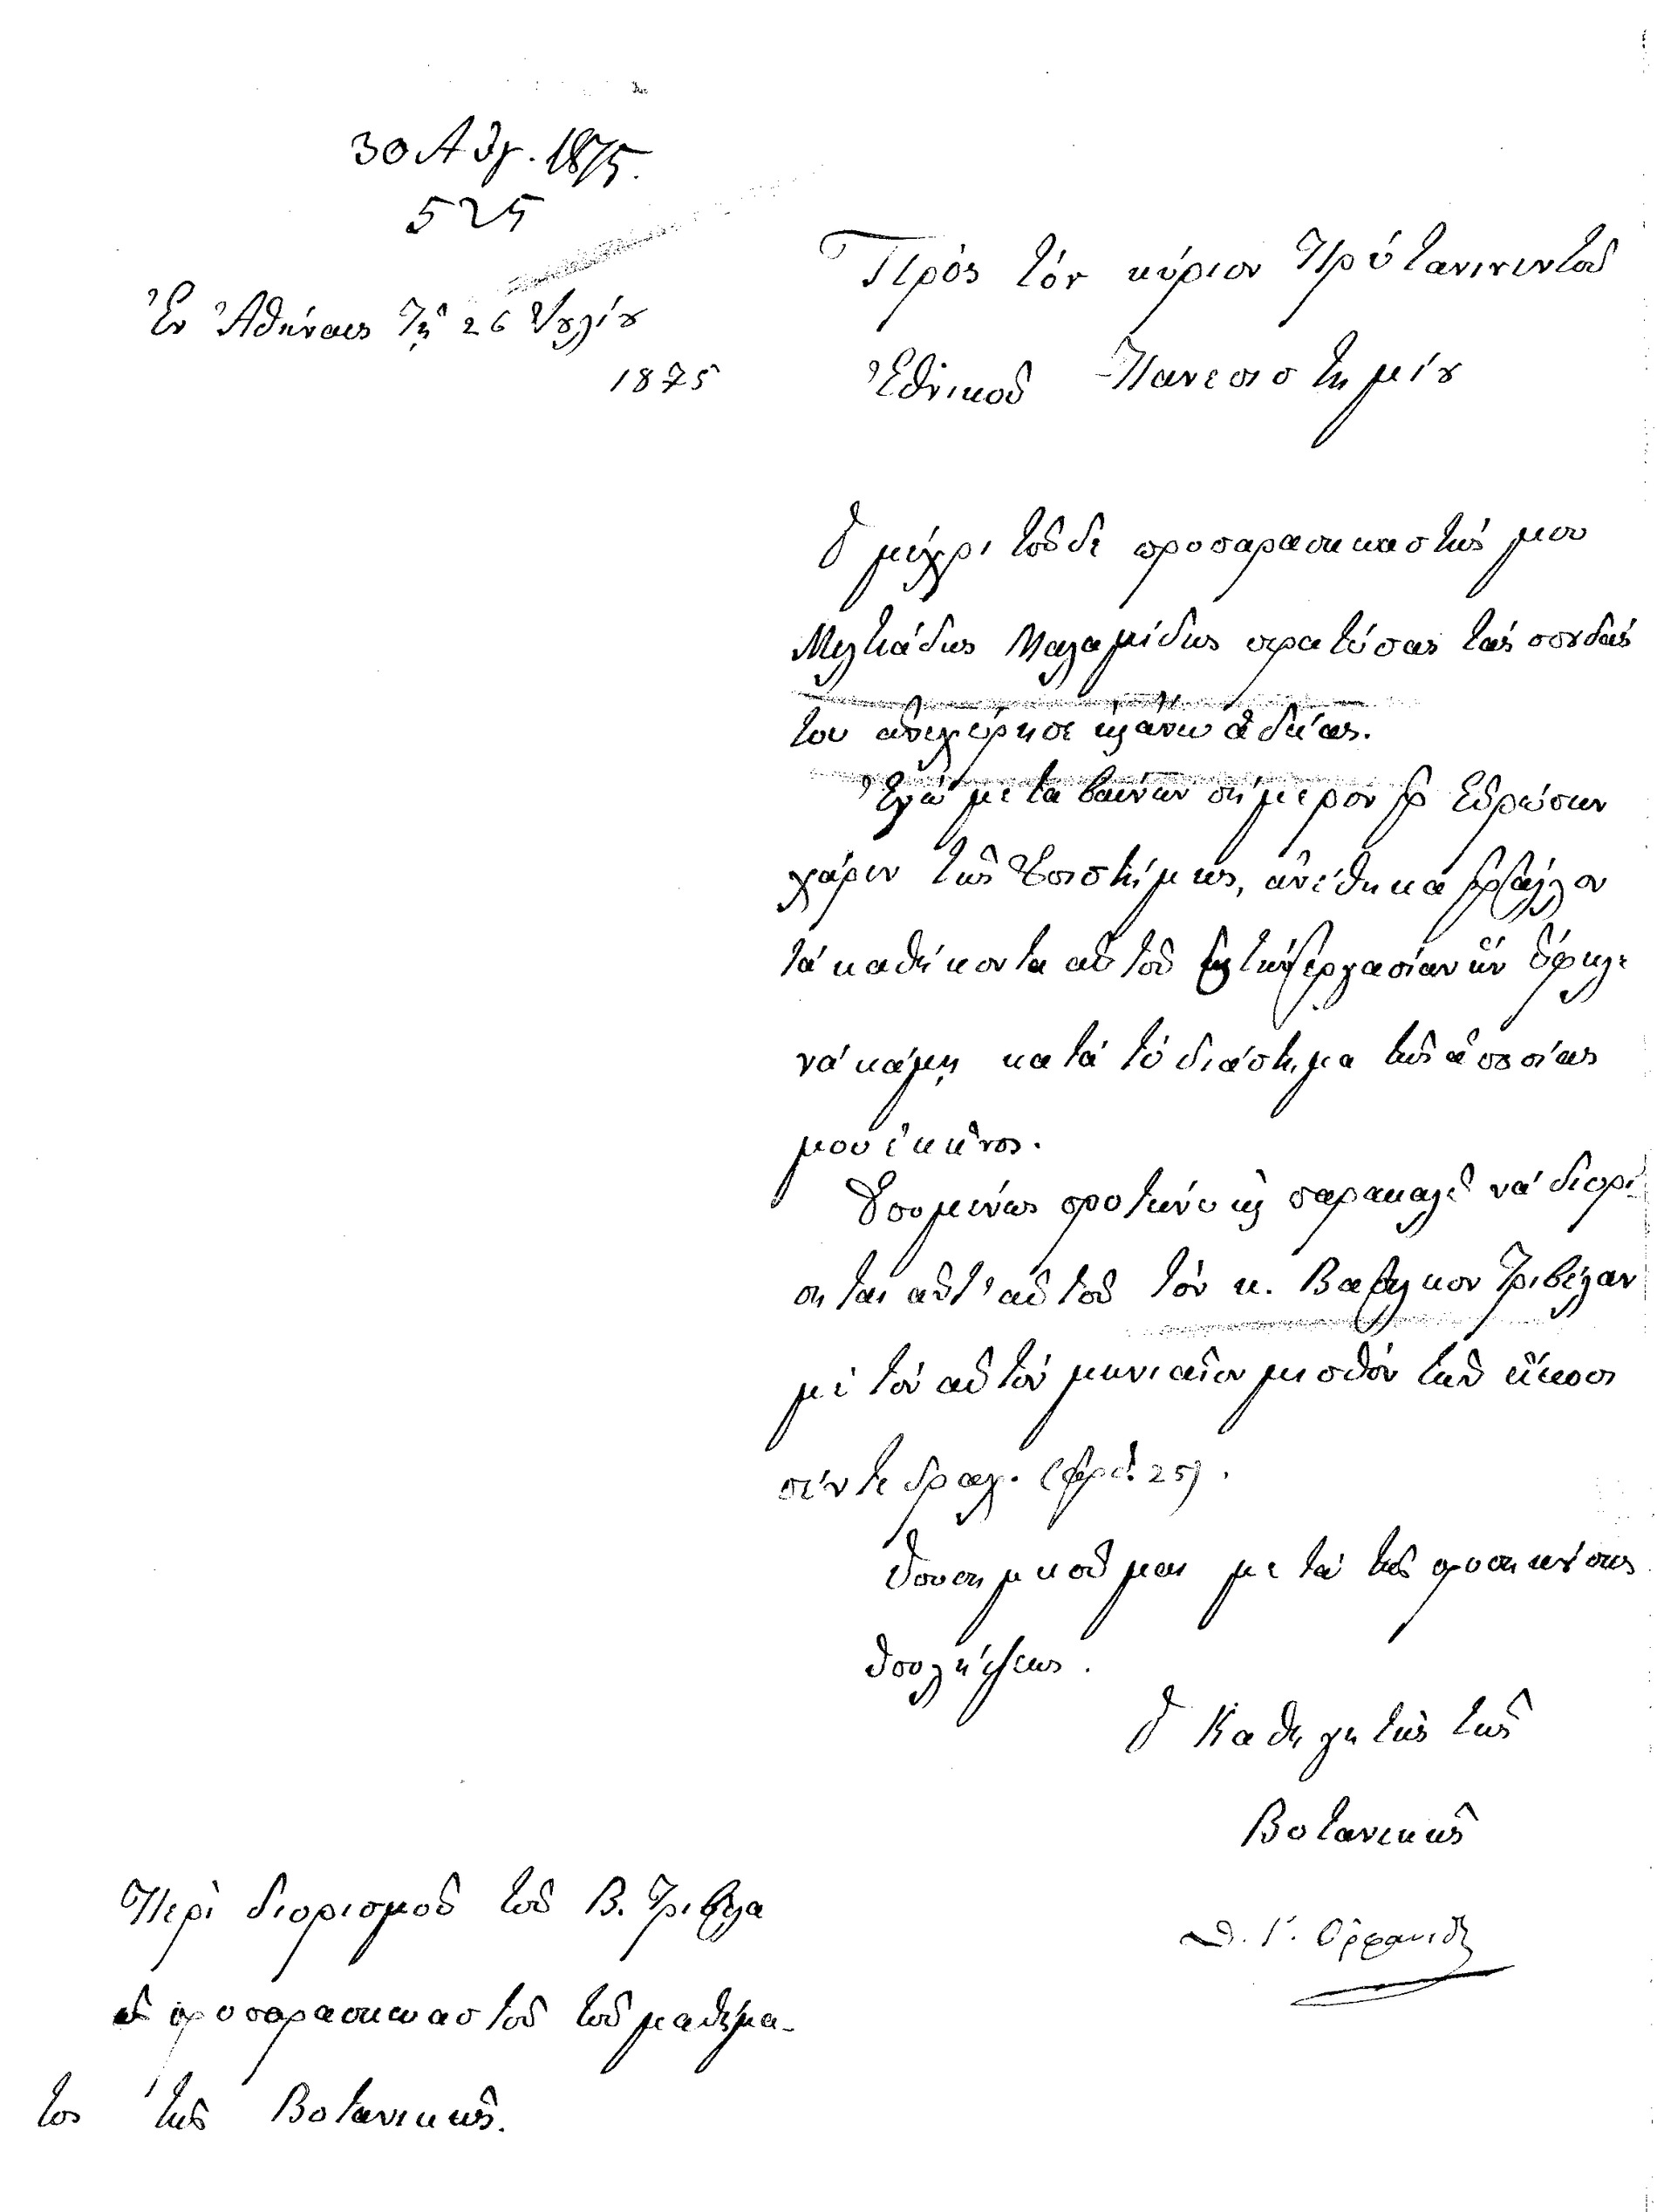 30 Αὐγ. 1875.
525
Ἐν Ἀθήναις τῇ 26 Ἰουλίου
1875
Πρὸς τὸν κύριον Πρύτανιν τοῦ
Ἐθνικοῦ Πανεπιστημίου
Ὁ μέχρι τοῦδε προπαρασκευαστής μου
Μιλτιάδης Μαλαμίδης περατώσας τὰς σπουδάς
του ἀπεχώρησε καὶ ἄνευ ἀδείας.
Ἐγὼ μεταβαίνων σήμερον εἰς Εὐρώπην
χάριν τῆς Ἐπιστήμης, ἀνέθηκα εἰς ἄλλον
τὰ καθήκοντα αὐτοῦ καὶ τὴν ἐργασίαν ἣν ὤφειλε
νὰ κάμῃ κατὰ τὸ διάστημα τῆς ἀπουσίας
μου ἐκεῖνος.
Ἑπομένως προτείνω καὶ παρακαλῶ νὰ διορί-
σηται ἀντ' αὐτοῦ τὸν κ. Τριβέλαν
μὲ τὸν αὐτὸν μηνιαῖον μισθὸν τῶν εἴκοσι
πέντε δραχ. (ἀρ. 25).
Ὑποσημειοῦμαι μετὰ τῆς προσηκούσης
ὑπολήψεως.
Ὁ Καθηγητὴς τῆς
Βοτανικῆς
Θ. Γ. Ὀρφανίδης
Περὶ διορισμοῦ τοῦ Β. Τριβέλα
ὡς προπαρασκευαστοῦ τοῦ μαθήμα-
τος τῆς Βοτανικῆς.